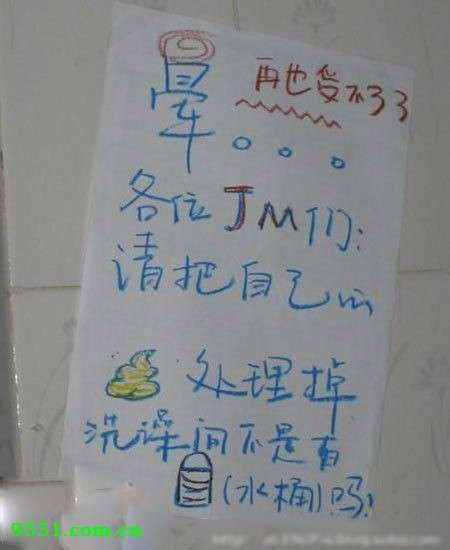 晕。。。
再也受不了了
各位JM们:
请把自己的
处理掉
洗澡间不是有
(水桶)吗!
9551.com.cn